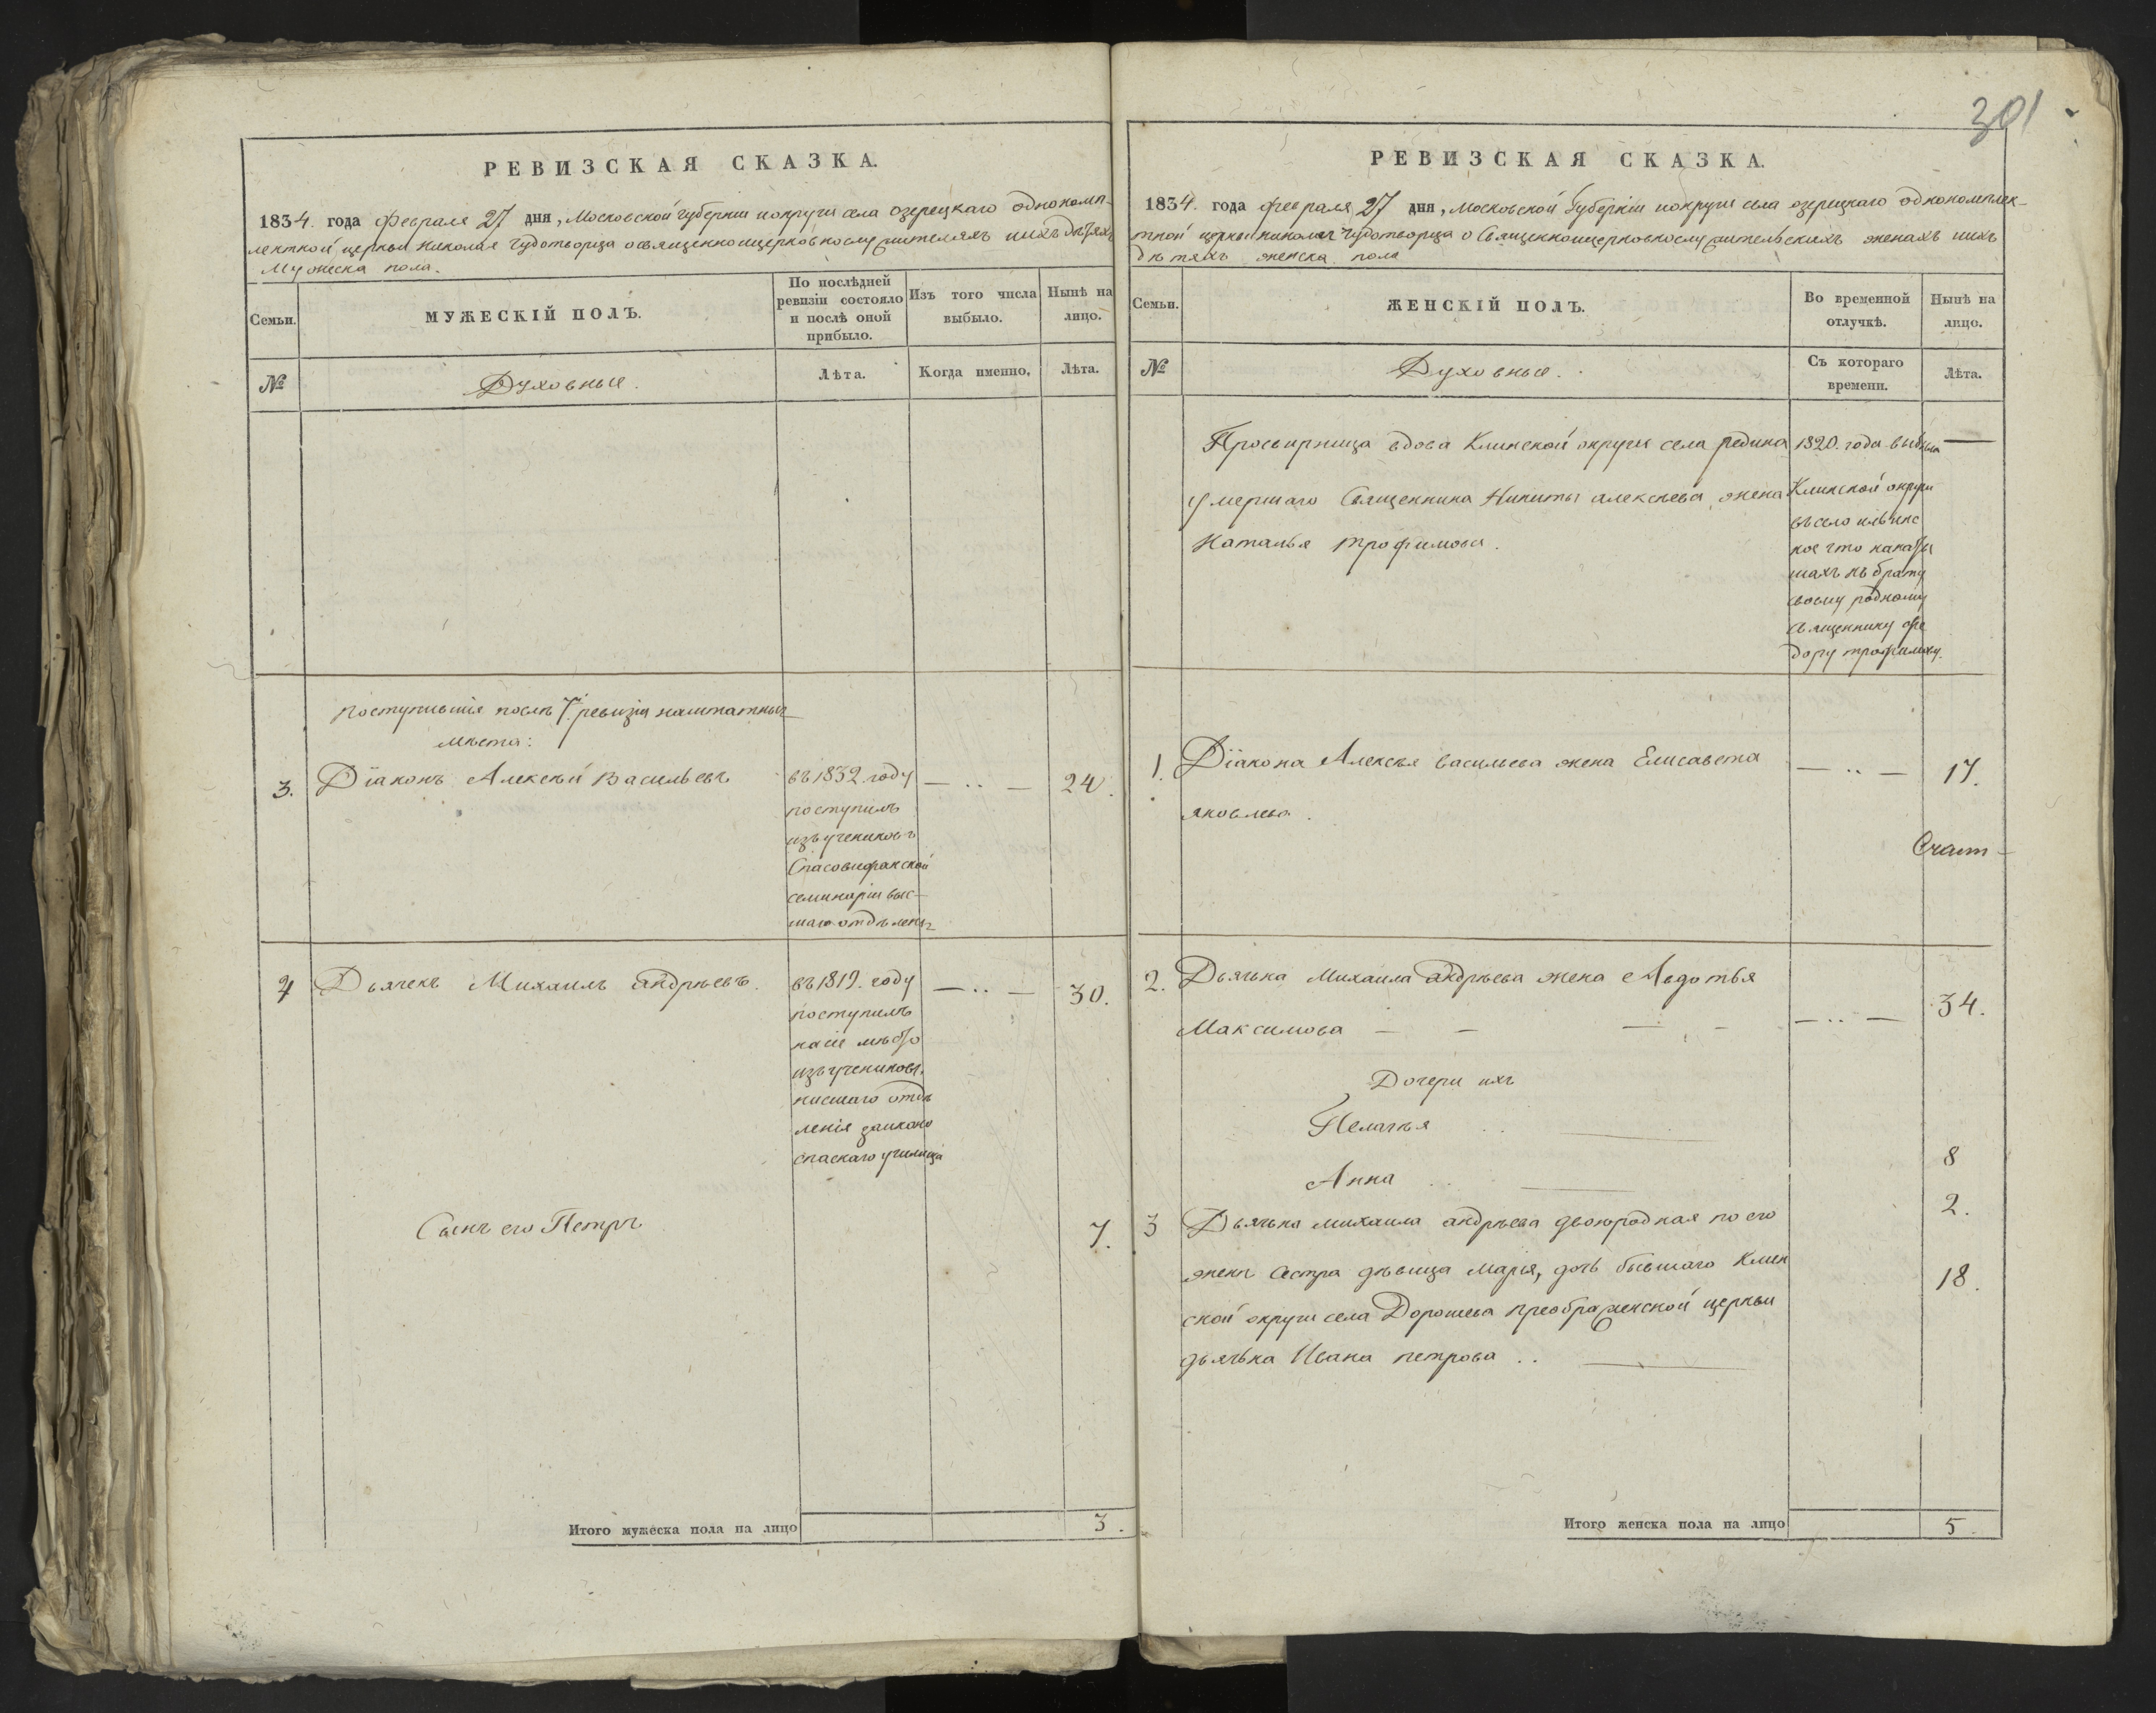 301
РЕВИЗСКАЯ СКАЗКА.
1834. года февраля 27 дня, Московской губерніи и округи села озерецкаго однокомп-
лектной церкви николая Чудотворца о священноицерковнослужителяхъ и ихъ дѣтяхъ
Мужеска пола.
Семьи.
МУЖЕСКІЙ ПОЛЪ.
По послѣдней
ревизіи состояло
и послѣ оной
прибыло.
Изъ того числа
выбыло.
Нынѣ на
лицо.
№
Духовные.
Лѣта.
Когда именно.
Лѣта.
поступившія послѣ 7й ревизіи наштатныя
мѣста:
3.
Діаконъ Алексѣй Васильевъ
въ 1832 году
поступилъ
изъ учениковъ
Спасовифанской
семинаріи выс-
шаго отдѣленія
— .. —
24.
4
Дьячекъ Михаилъ андрѣевъ.
въ 1819. году
поступилъ
на сіе мѣсто
изъ учениковъ
нисшаго отдѣ
ленія заиконо
спаскаго училища
— .. —
30.
Сынъ его Петръ
7.
Итого мужеска пола на лицо
3.
РЕВИЗСКАЯ СКАЗКА.
1834. года февраля 27 дня, Московской Губерніи и округи села озерецкаго однокомплек-
тной церкви николая Чудотворца о Священноицерковнослужительскихъ женахъ и ихъ
дѣтяхъ женска пола
Семьи.
ЖЕНСКІЙ ПОЛЪ.
Во временной
отлучкѣ.
Нынѣ на
лицо.
№
Духовные.
Съ котораго
времени.
Лѣта.
Просвирница вдова Клинской округи села редина
умершаго Священника Никиты алексѣева жена
Наталья трофимова.
1820. года выбыла
Клинской округи
въ село ильинс
кое что на
къ брату
своему родному
священнику фе
дору трофимову.
—
1.
Діакона Алексѣя васильева жена Елисавета
яковлева.
— .. —
17.
2.
Дьячька Михаила андрѣева жена Авдотья
Максимова — — — —
— .. —
34.
Дочери ихъ
Пелагѣя ..
8
Анна ..
2.
3
Дьячька михаила андрѣева двоюродная по его
женѣ Сестра дѣвица Марія, дочь бывшаго Клин
ской округи села Дорошева преображенской церкви
дьячька Ивана петрова ..
18.
Итого женска пола на лицо
5.